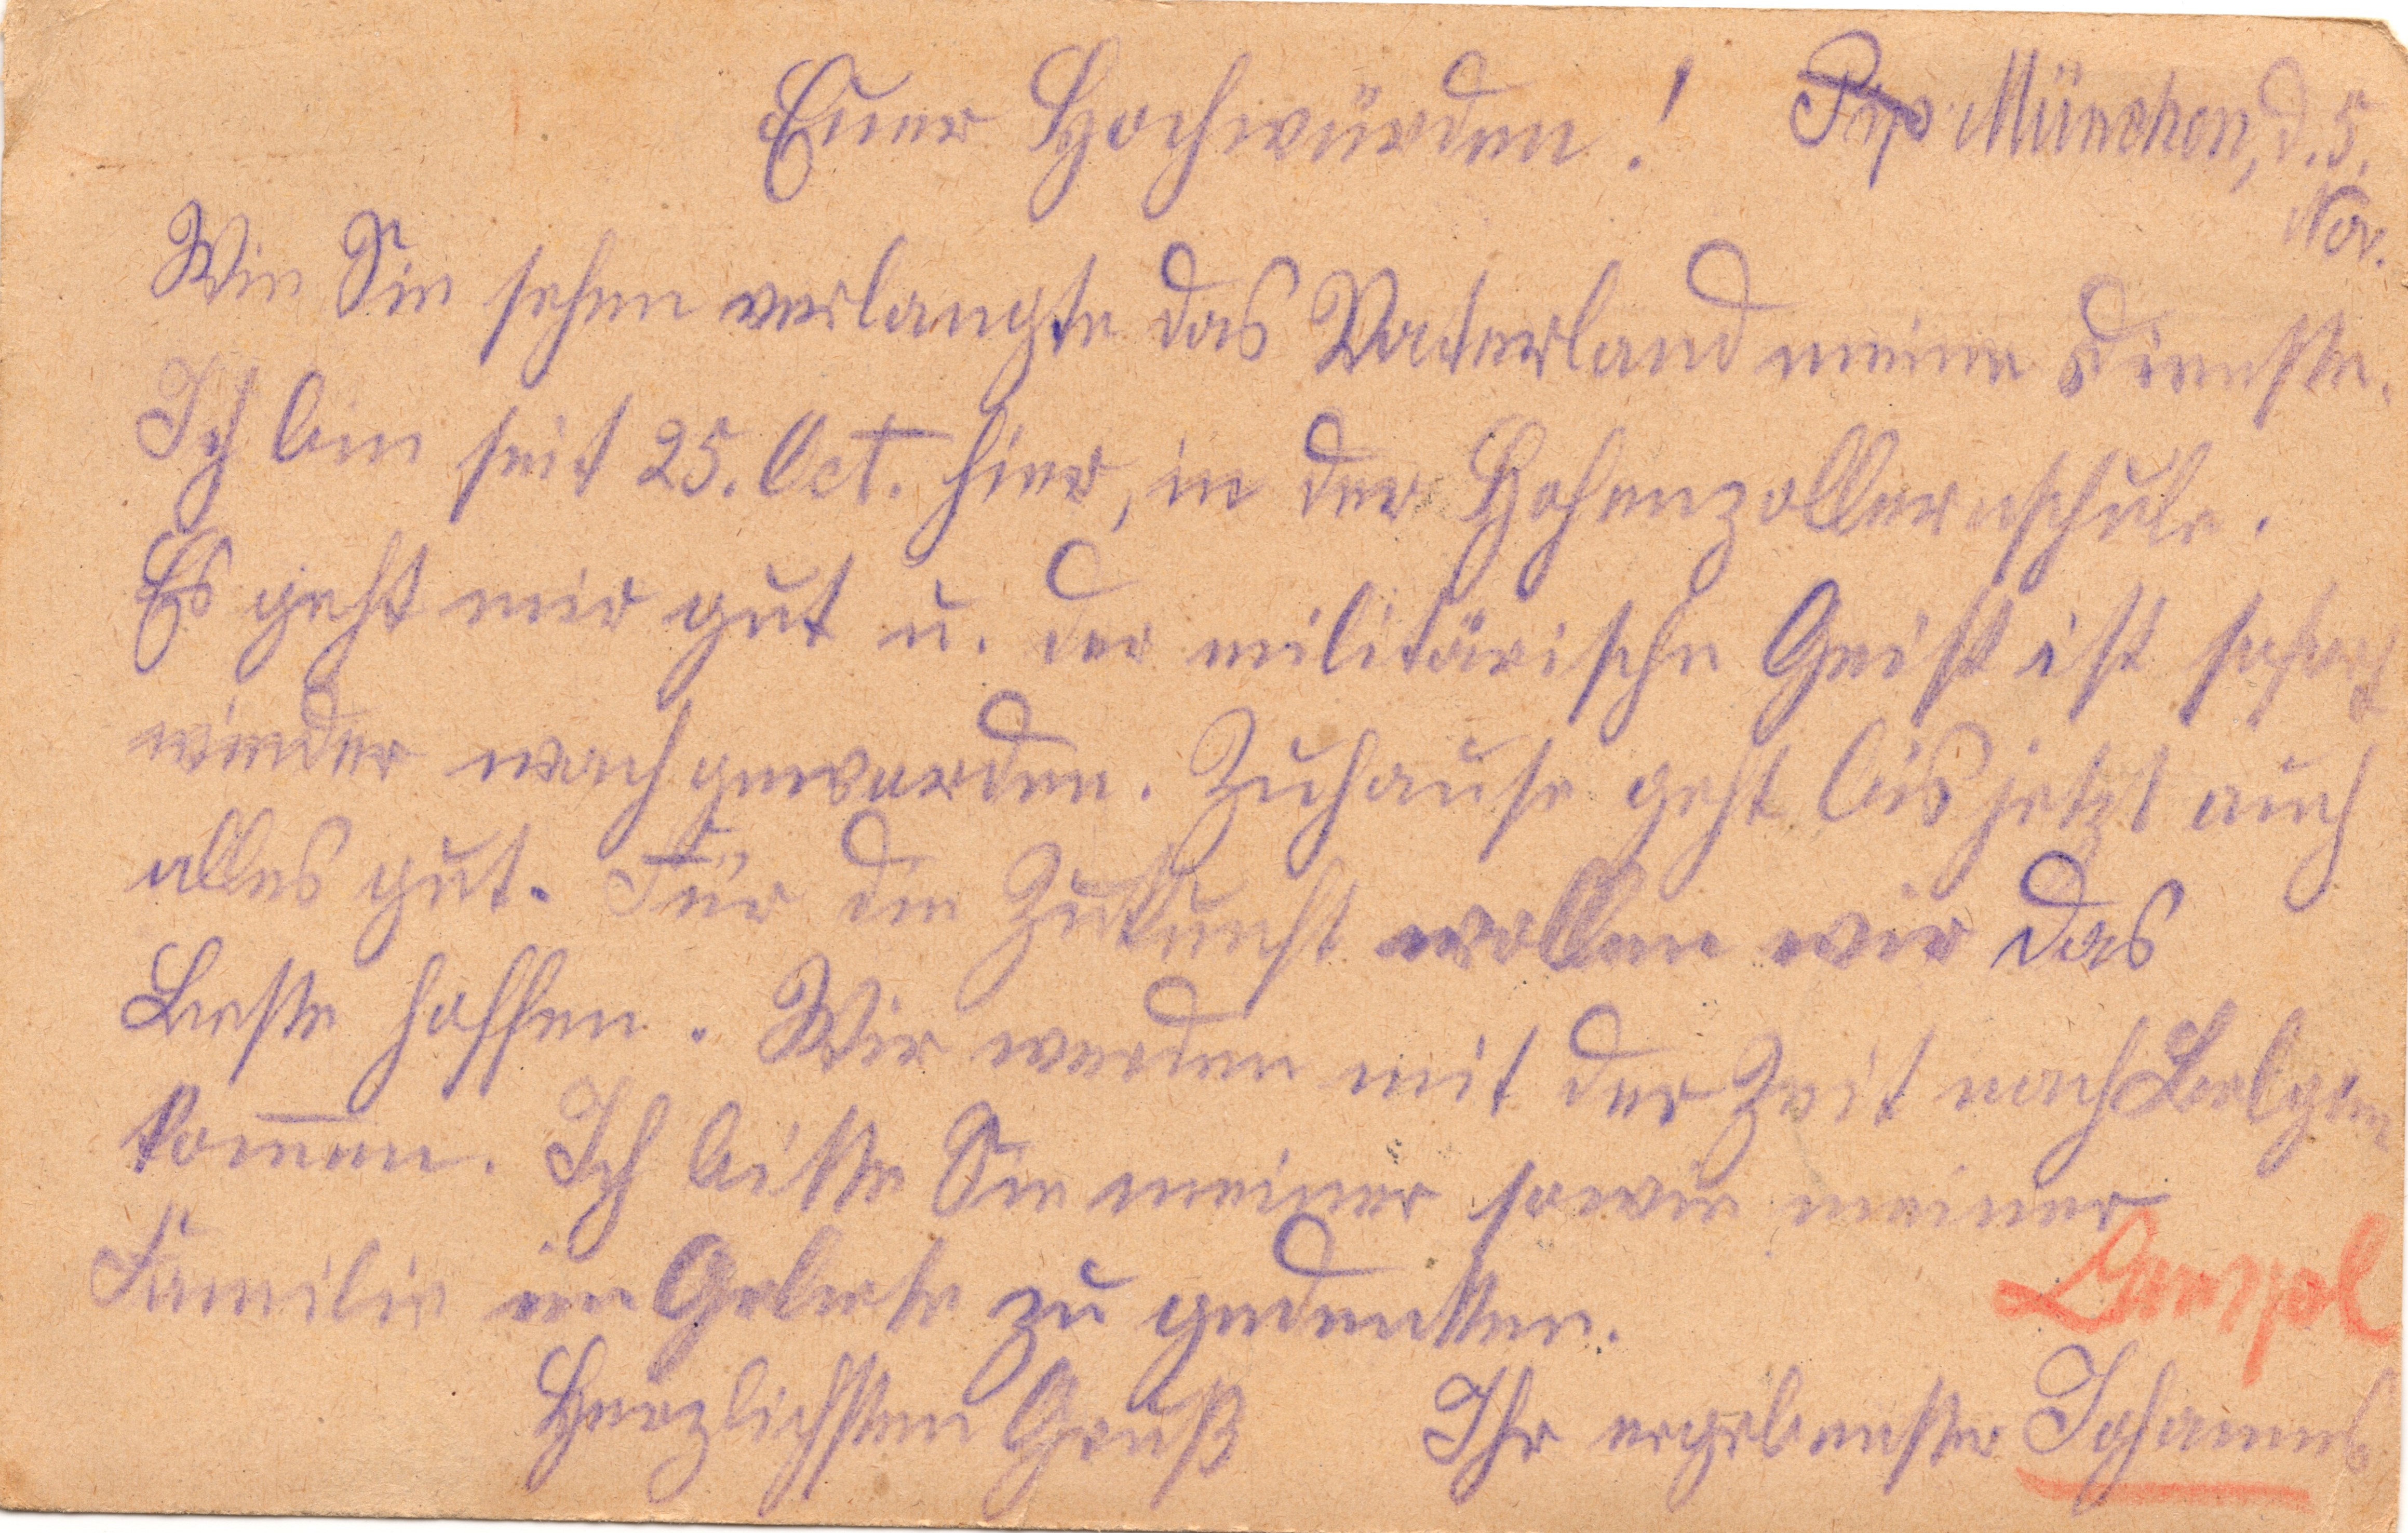 Euer Hochwürden! München, d. 5.
Nov.
Wie Sie sehen verlangte das Vaterland meine Dienste.
Ich bin seit 25. Oct. hier, in der Hohenzollernschule.
Es geht mir gut u. der militärische Geist ist sofort
wieder wach geworden. Zuhause geht bis jetzt auch
alles gut. Für die Zukunft wollen wir das
Beste hoffen. Wir werden mit der Zeit nach Belgien
kom̅en. Ich bitte Sie meiner sowie meiner
Familie im Gebete zu gedenken.
Herzlichsten Gruß Ihr ergebenster Johannes